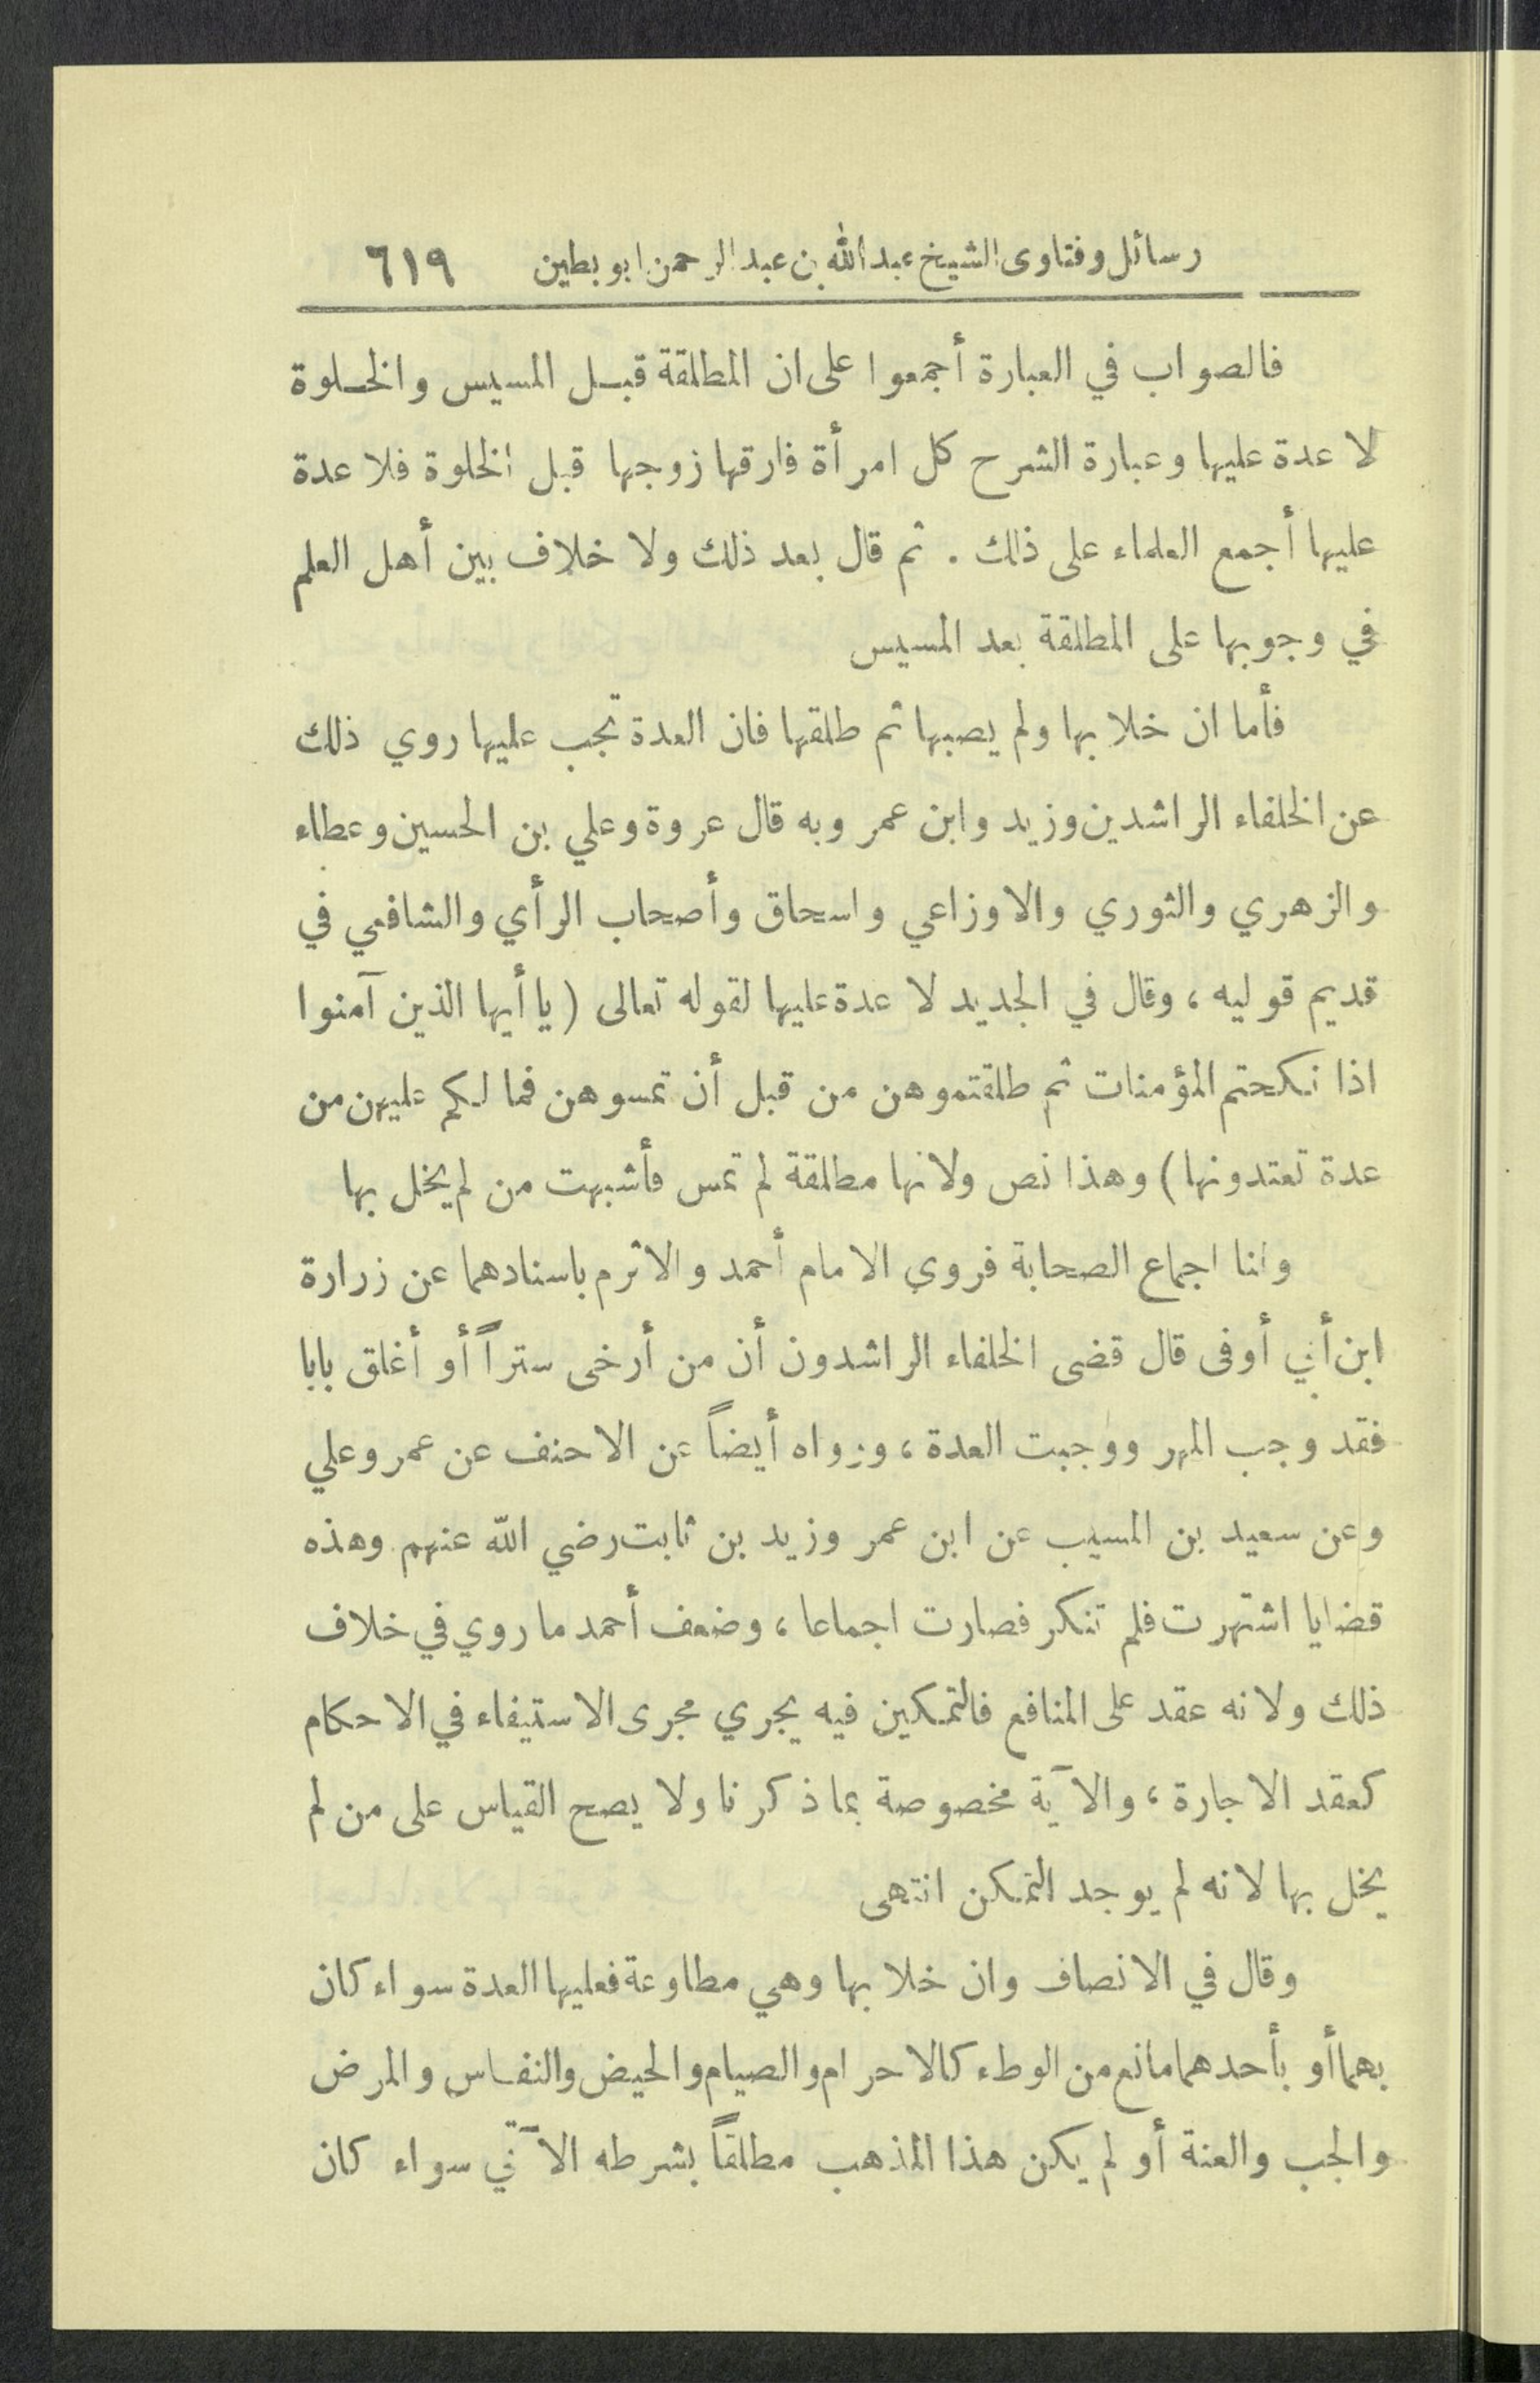 رسائل وفتاوى الشيخ عبد الله بن عبد الرحمن ابو بطين ٦١٩
فالصواب في العبارة أجمعوا على ان المطلقة قبل المسيس والخلوة
لا عدة عليها وعبارة الشرح كل امرأة فارقها زوجها قبل الخلوة فلا عدة
عليها أجمع العلماء على ذلك . ثم قال بعد ذلك ولا خلاف بين أهل العلم
في وجوبها على المطلقة بعد المسيس
فأما ان خلا بها ولم يصبها ثم طلقها فان العدة تجب عليها روي ذلك
عن الخلفاء الراشدين وزيد وابن عمر وبه قال عروة وعلي بن الحسين وعطاء
والزهري والثوري والاوزاعي واسحاق وأصحاب الرأي والشافعي في
قديم قوليه ، وقال في الجديد لا عدة عليها لقوله تعالى ( يا أيها الذين آمنوا
اذا نكحتم المؤمنات ثم طلقتموهن من قبل أن تمسوهن فما لكم عليهن من
عدة تعتدونها ) وهذا نص ولانها مطلقة لم تمس فأشبهت من لم يخل بها
ولنا اجماع الصحابة فروى الامام أحمد والاثرم باسنادهما عن زرارة
ابن أبي أوفى قال قضى الخلفاء الراشدون أن من أرخى ستراً أو أغلق بابا
فقد وجب المهر ووجبت العدة ، ورواه أيضاً عن الاحنف عن عمر وعلي
وعن سعيد بن المسيب عن ابن عمر وزيد بن ثابت رضي الله عنهم وهذه
قضايا اشتهرت فلم تنكر فصارت اجماعا ، وضعف أحمد ما روي في خلاف
ذلك ولانه عقد على المنافع فالتمكين فيه يجري مجرى الاستيفاء في الاحكام
كعقد الاجارة ، والآية مخصوصة بما ذكرنا ولا يصح القياس على من لم
يخل بها لانه لم يوجد التمكن انتهى
وقال في الانصاف وان خلا بها وهي مطاوعة فعليها العدة سواء كان
بهما أو بأحدهما مانع من الوطء كالاحرام والصيام والحيض والنفاس والمرض
والجب والعنة أو لم يكن هذا المذهب مطلقاً بشرطه الآتي سواء كان